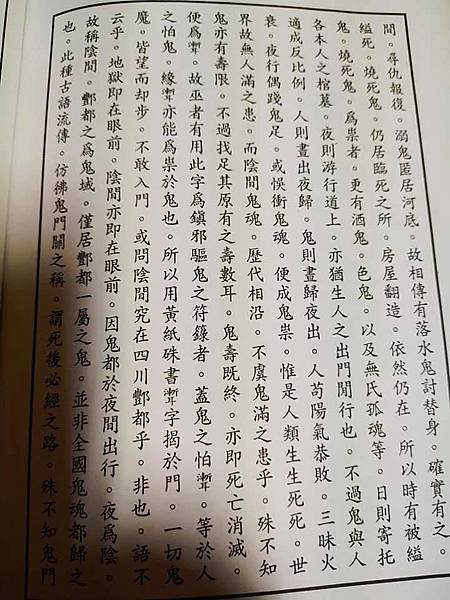 間。尋仇報復。溺鬼匿居河底。故相傳有落水鬼討替身。確實有之。
縊死。燒死鬼。仍居臨死之所。房屋翻造。依然仍在。所以時有被縊
鬼。燒死鬼。為祟者。更有酒鬼。色鬼。以及無氏孤魂等。日則寄托
各本人之棺墓。夜則游行道上。亦猶生人之出門閒行也。不過鬼與人
適成反比例。人則晝出夜歸。鬼則晝歸夜出。人苟陽氣恭敗。三昧火
衰。夜行偶踐鬼足。或悞衝鬼魂。便成鬼祟。惟是人類生生死死。世
界故無人滿之患。而陰間鬼魂。歷代相沿。不虞鬼滿之患乎。殊不知
鬼亦有壽限。不過找足其原有之壽數耳。鬼壽既終。亦即死亡消滅。
便為魙。故巫者有用此字為鎮邪驅鬼之符籙者。蓋鬼之怕魙。等於人
之怕鬼。緣魙亦能為祟於鬼也。所以用黃紙硃書魙字揭於門。一切鬼
魔。皆望而却步。不敢入門。或問陰間究在四川酆都乎。非也。語不
云乎。地獄即在眼前。陰間亦即在眼前。因鬼都於夜間出行。夜為陰。
故稱陰間。酆都之為鬼域。僅居酆都一屬之鬼。並非全國鬼魂都歸之
也。此種古語流傳。仿彿鬼門關之稱。謂死後必經之路。殊不知鬼門